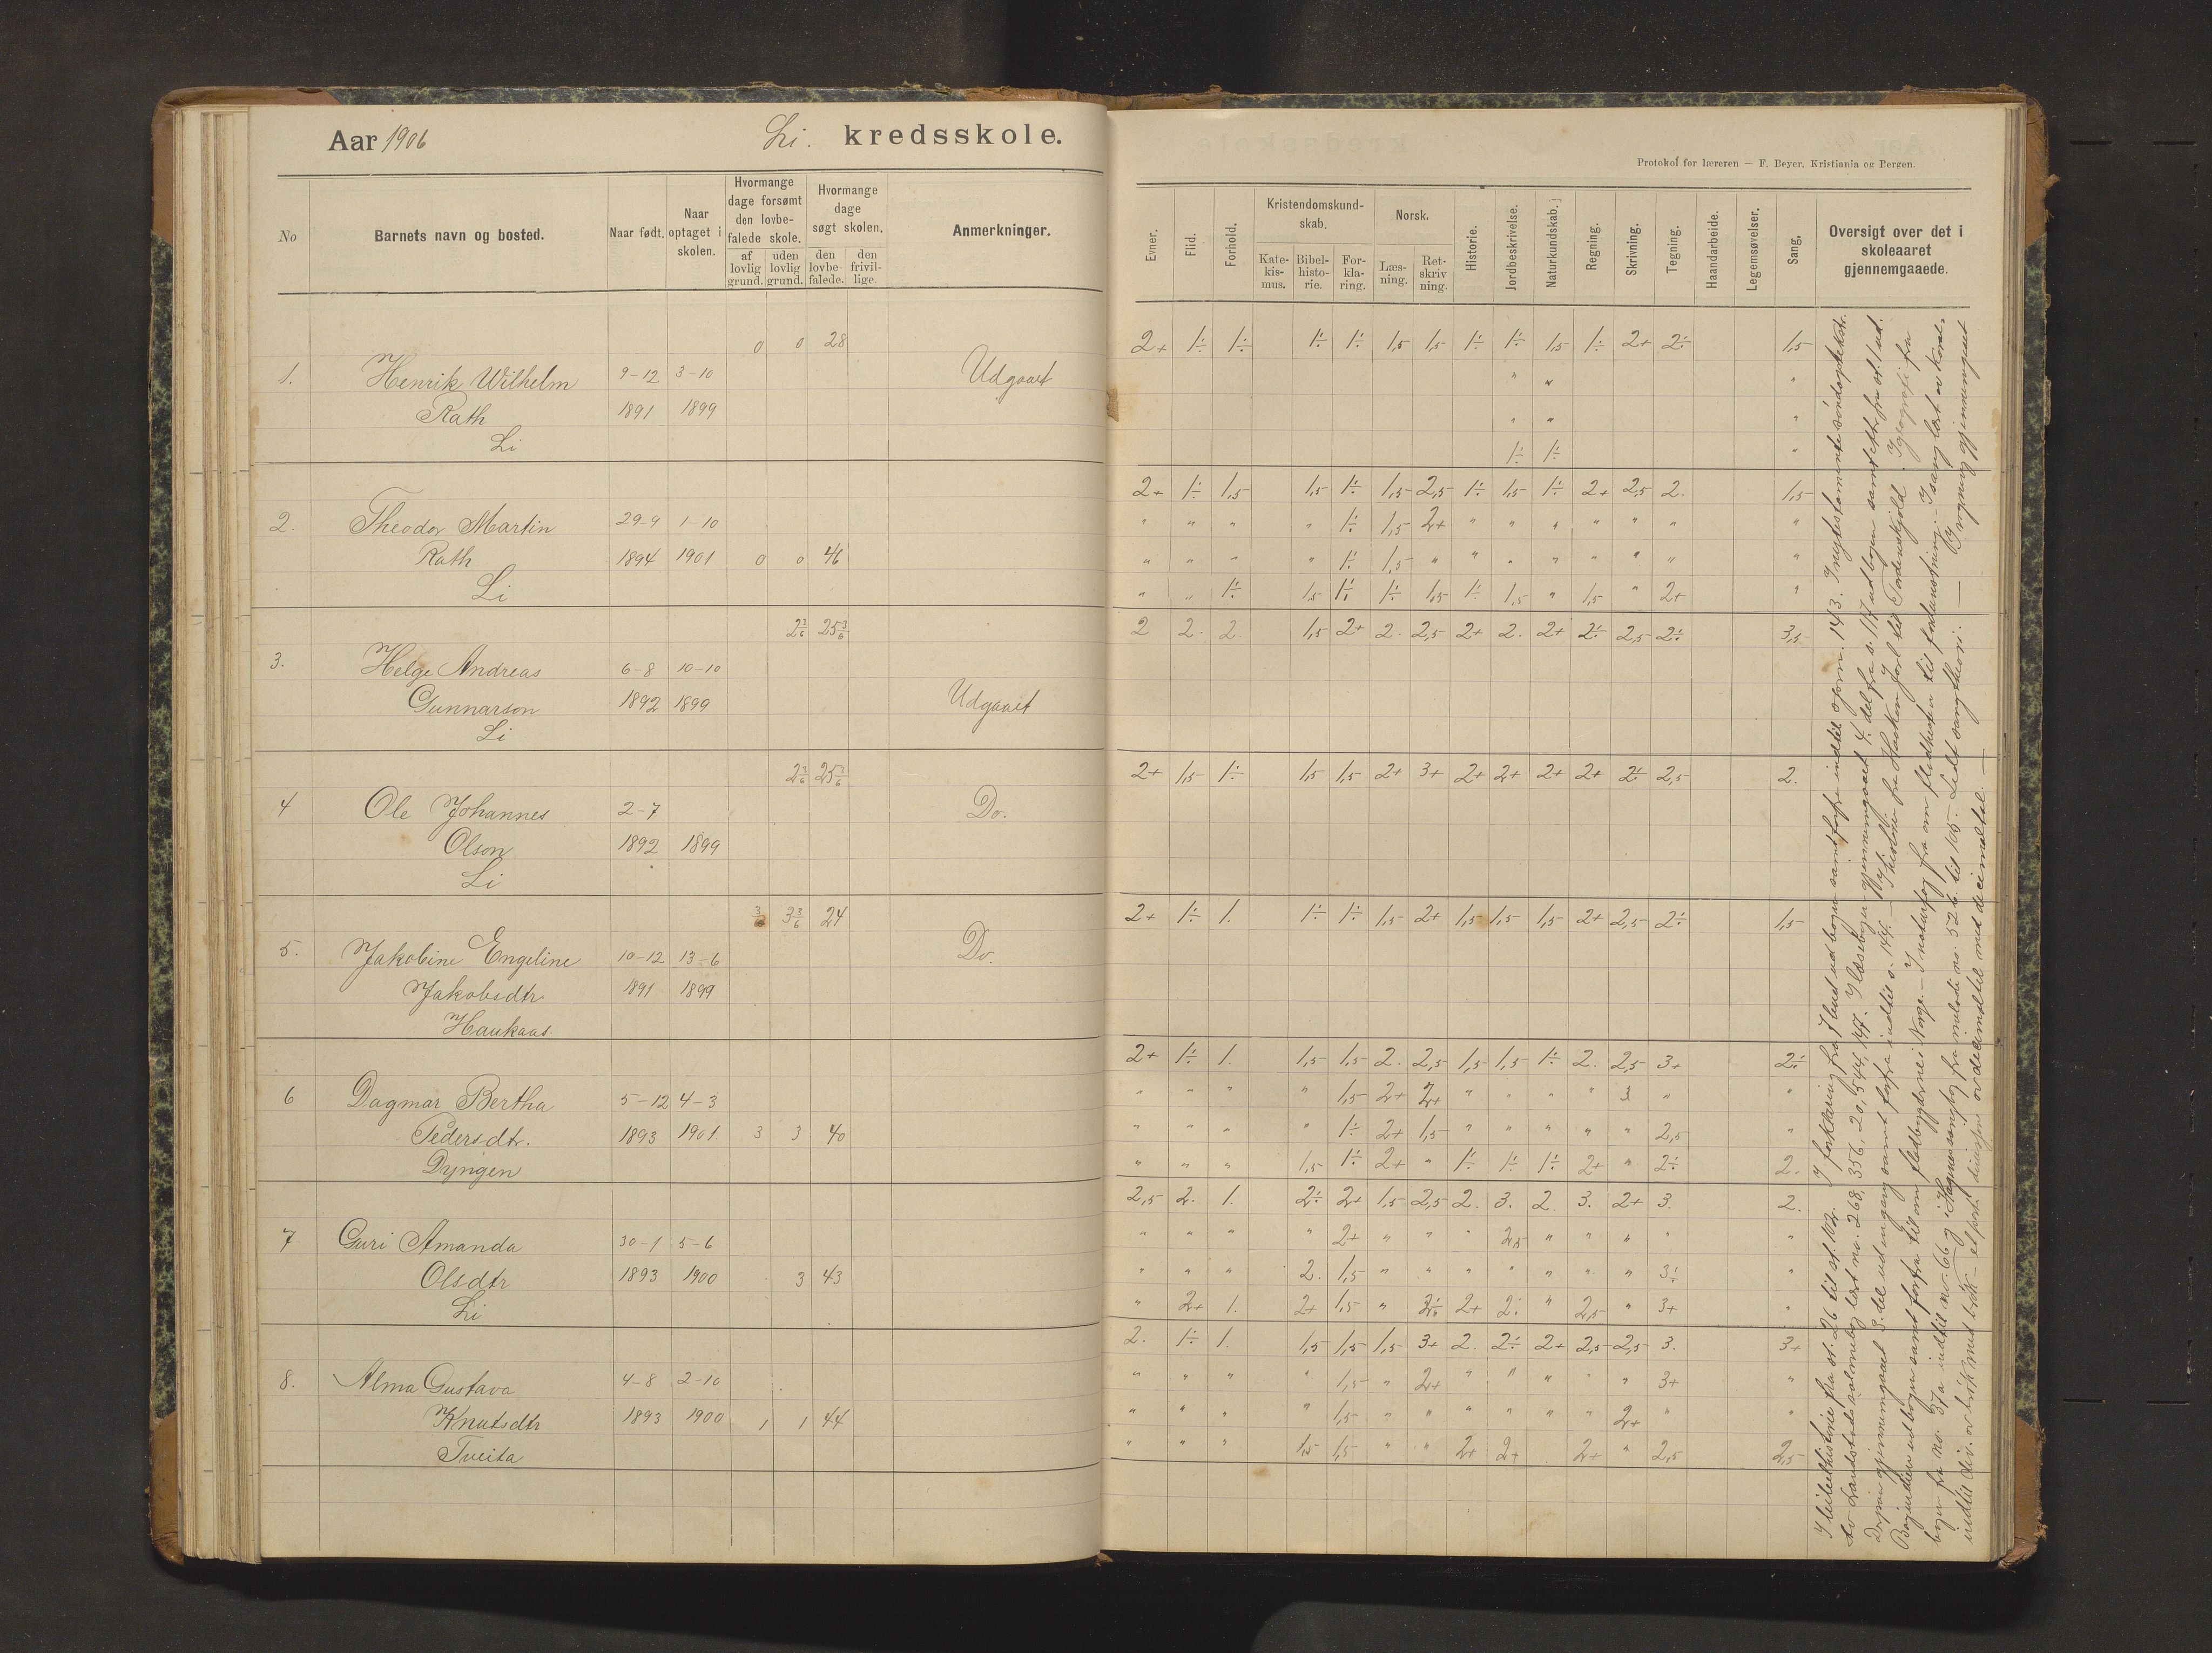 Aar 1906 Li. kredsskole.
Protokol for læreren — F. Beyer. Kristiania og Bergen.
No
Barnets navn og bosted.
Naar født.
Naar optaget i skolen.
Hvormange dage forsømt den lovbefalede skole.
af lovlig grund.
uden lovlig grund.
Hvormange dage søgt skolen.
den lovbefalede.
den frivillige.
Anmerkninger.
Evner.
Flid.
Forhold.
Kristendomskundskab.
Katekismus.
Bibelhistorie.
Forklaring.
Norsk.
Læsning.
Retskrivning.
Historie.
Jordbeskrivelse.
Naturkundskab.
Regning.
Skrivning.
Tegning.
Haandarbeide.
Legemsøvelser.
Sang.
Oversigt over det i skoleaaret gjennemgaaede.
0 0 28
1. Henrik Wilhelm 9-12 3-10 Udgaaet
Rath 1891 1899
Li
2. Theodor Martin 29-9 1-10
Rath 1894 1901 0 0 46
Li
2 3/6 25 3/6
3. Helge Andreas 6-8 10-10
Gunnarson 1892 1899 Udgaaet
Li
2 3/6 25 3/6
4 Ole Johannes 2-7 Do.
Olson 1892 1899
Li
3 3/6 24
5. Jakobine Engeline 10-12 13-6 Do.
Jakobsdtr 1891 1899
Haukaas.
6 Dagmar Bertha 5-12 4-3
Pedersdtr. 1893 1901. 3 3 40
Dyngen
7 Guri Amanda 30-1 5-6
Olsdtr 1893 1900 3 43
Li
8. Alma Gustava 4-8 2-10
Knutsdtr 1893 1900 1 1 44
Tveita
2+ 1÷ 1÷ 1÷ 1÷ 1,5 1,5 1÷ 1÷ 1,5 1÷ 2+ 2÷ 1,5
" " "
" " "
1÷ 1÷ "
2+ 1÷ 1,5 1,5 1÷ 1,5 2,5 1÷ 1,5 1÷ 2+ 2,5 2. 1,5
" " " " 1÷ 1,5 2+ " " " " " " "
" " " " 1÷ 1,5 " " " " " " " "
" " 1÷ 1,5 1÷ 1÷ 1,5 1÷ 1,5 " 1,5 " 2+ "
2 2. 2. 1,5 2+ 2. 2,5 2+ 2. 2+ 2÷ 2,5 2÷ 3,5
2+ 1,5 1÷ 1,5 1,5 2+ 3+ 2+ 2+ 2+ 2+ 2÷ 2,5 2.
2+ 1÷ 1. 1÷ 1÷ 1,5 2+ 1,5 1,5 1,5 2+ 2,5 2÷ 1,5
2+ 1÷ 1. 1,5 1,5 2. 2,5 1,5 1,5 1÷ 2. 2,5 3+ 2÷
" " " " 1,5 2+ 2+ " " " " 3 " "
" " " " 1÷ 2+ 1,5 " " " " " 2,5 "
" " " 1,5 1÷ 2+ " 1÷ 1÷ 1÷ 2+ " 2÷ 2.
2,5 2. 1. 2÷ 2+ 1,5 2,5 2. 3. 2. 3. 2+ 3. 2.
" " " " 2+ " " " 2,5 " " " " "
" " " 2. 1,5 " " " " " " " 3÷ "
" 2+ 1. 2+ 1,5 " 3÷ 2+ 2÷ " 2,5 " 3+ "
2. 1÷ 1. 1,5 1,5 1,5 3+ 2. 2÷ 2+ 2,5 2,5 3. 3+
" " " " 1,5 " 2+ " " " " " 3+ "
" " " " 1,5 " " " " " " 2+ " "
" " " 1,5 1,5 " " 2+ 2+ 2+ " 2,5 2,5
I bibelhistorie fra st. 26 til st. 102. I forklaring fra bogen samt forfra indtil spørm. 143. I nytestamente
av Landstads salmebog lært no. 268, 356, 20, 544, 147. I læsebogen gjennemgaaet 4. del fra s. 117 ud bogen samt
gjennemgaaet 3. del ud en gang samt forfra indtil s. 144. — I historie fra Haakon Jarl til Tordenskjold. I geografi fra
ud bogen samt forfra til om fladbygderne i Norge. — I naturfag fra om til — I sang lært av
fra no. indtil no. 66 og i sangbog fra melodi no. 52 til 105. — Lidt sangtheori. — I regning gjennemgaaet
indtil div. av brøk med brøk — og decimaltal med decimaltal. —